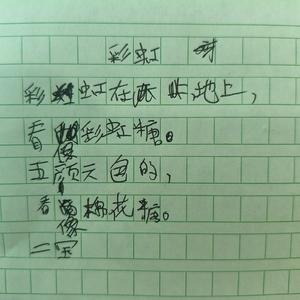 彩虹
彩虹在地上，
看像彩虹糖。
五颜六色的，
看像棉花糖。
二